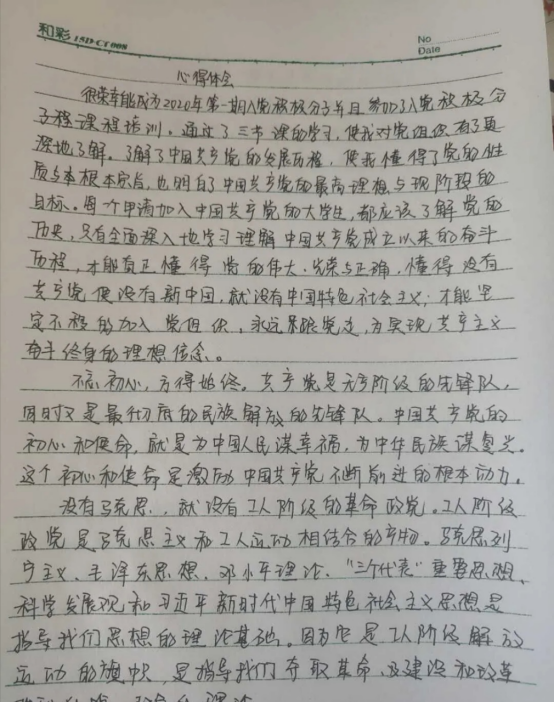 和彩 15D-CT008
No
Date
心得体会
很荣幸能成为2020年第一期入党积极分子并且参加了入党积极分
子程课程培训。通过了三节课的学习，使我对党组织有了更
深地了解。了解了中国共产党的发展历程，使我懂得了党的性
质与本根本宗旨，也明白了中国共产党的最高理想与现阶段的
目标。每个申请加入中国共产党的大学生，都应该了解党的
历史，只有全面深入地学习理解中国共产党成立以来的奋斗
历程，才能真正懂得党的伟大、光荣与正确，懂得没有
共产党便没有新中国，就没有中国特色社会主义；才能坚
定不移的加入党组织，永远跟随党走，为实现共产主义
奋斗终身的理想信念。
不忘初心，方得始终。共产党是无产阶级的先锋队，
同时又是最彻底的民族解放的先锋队。中国共产党的
初心和使命，就是为中国人民谋幸福，为中华民族谋复兴。
这个初心和使命是激励中国共产党不断前进的根本动力。
没有马克思，就没有工人阶级的革命政党。工人阶级
政党是马克思主义和工人运动相结合的产物。马克思列
宁主义、毛泽东思想、邓小平理论、“三个代表”重要思想、
科学发展观和习近平新时代中国特色社会主义思想是
指导我们思想的理论基础。因为它是工人阶级解放
运动的旗帜，是指导我们夺取革命、建设和改革